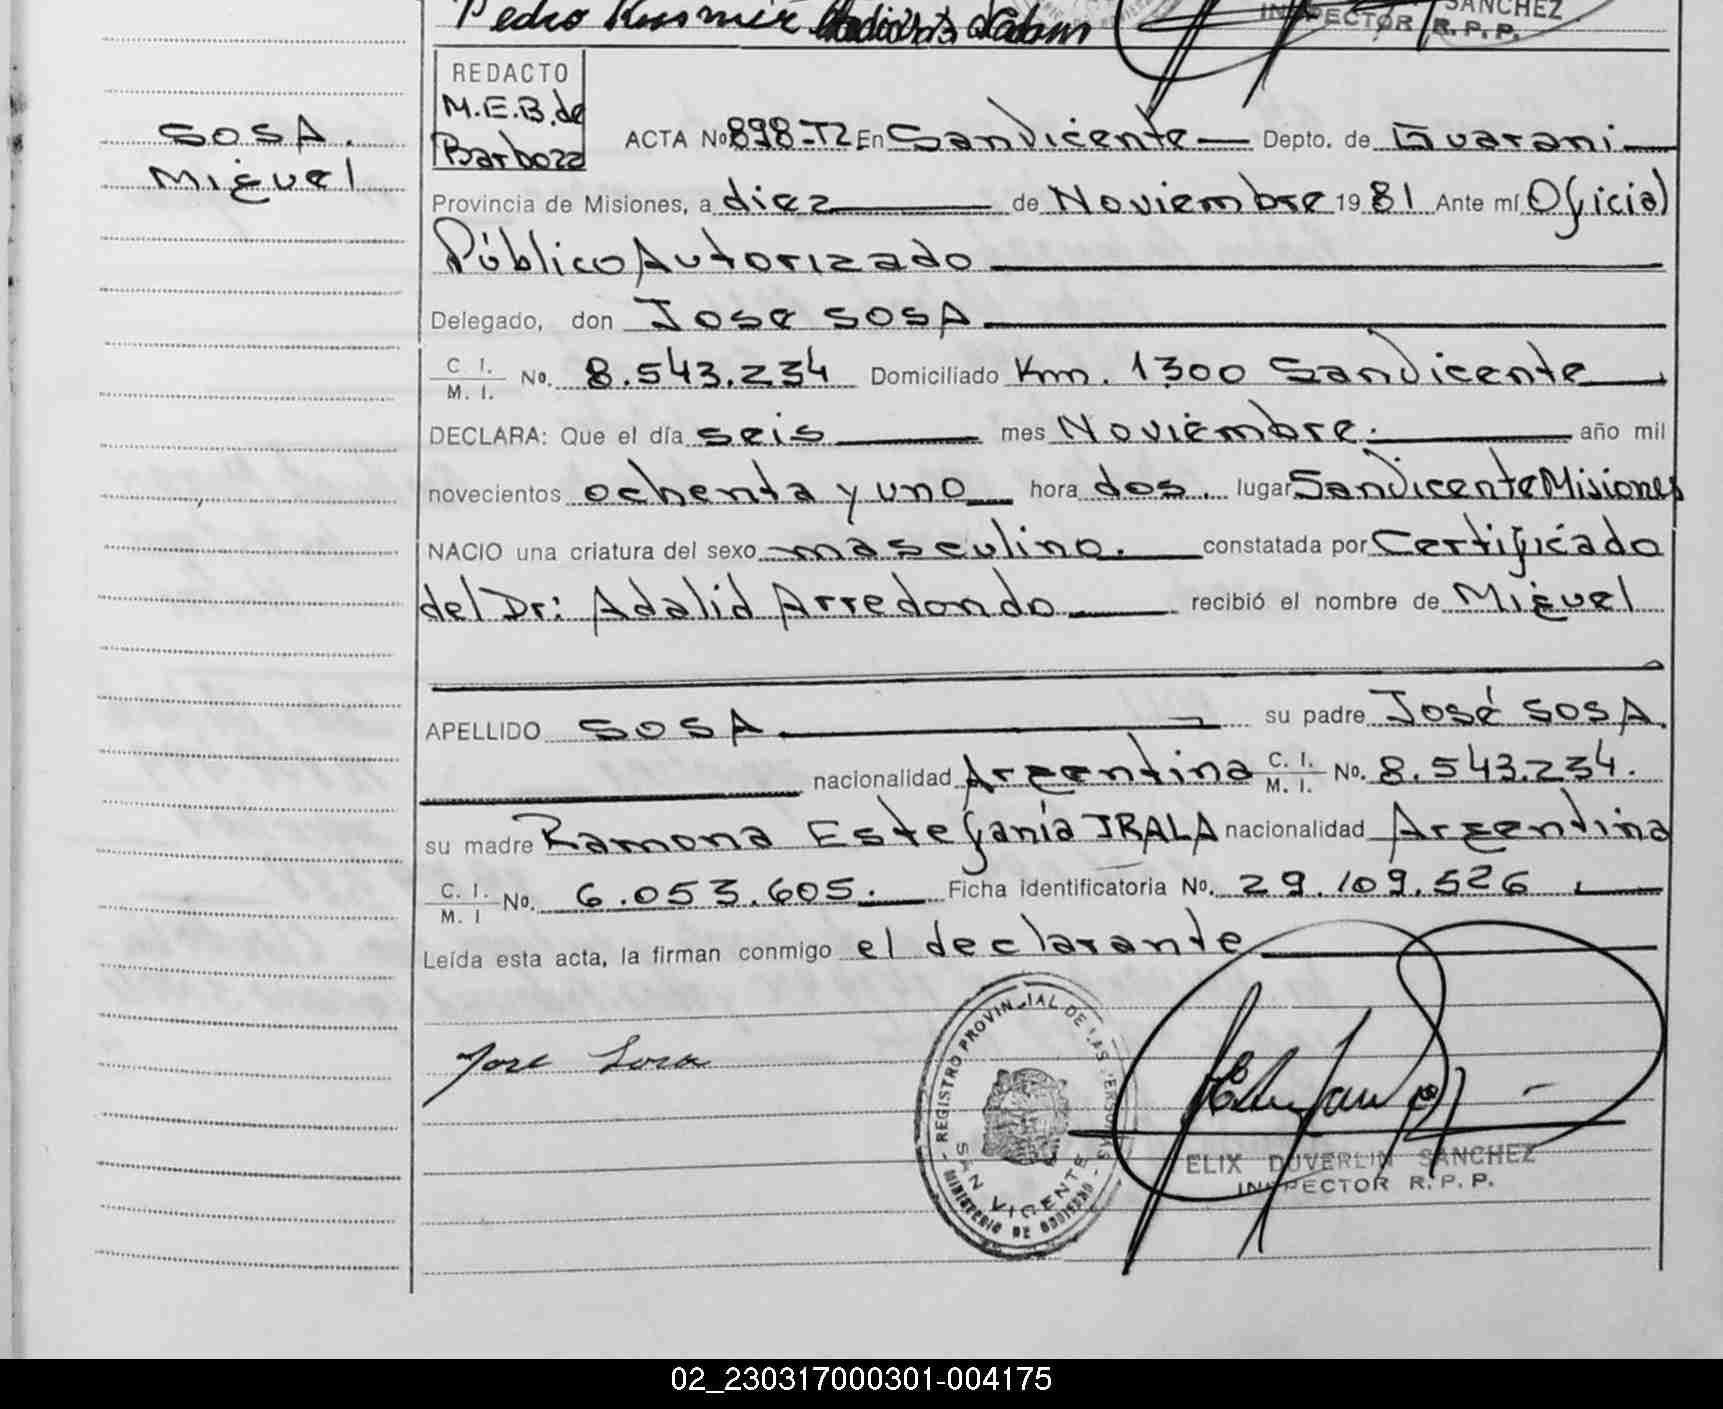 Pedro Kusmir
SANCHEZ
INSPECTOR R.P.P.
SOSA.
Miguel
REDACTO
M.E.B. de
Barboza
ACTA No 898-T2 En San Vicente — Depto. de Guaraní —
Provincia de Misiones, a diez — de Noviembre 1981 Ante mí Oficial
Público Autorizado —
Delegado, don Jose SOSA —
C. I. / M. I. No. 8.543.234 Domiciliado Km. 1300 San Vicente —
DECLARA: Que el día seis — mes Noviembre. — año mil
novecientos ochenta y uno — hora dos. lugar San Vicente Misiones
NACIO una criatura del sexo masculino. — constatada por Certificado
del Dr: Adalid Arredondo — recibió el nombre de Miguel
APELLIDO SOSA — su padre José SOSA.
nacionalidad Argentina C. I. / M. I. No. 8.543.234.
su madre Ramona Estefanía IRALA nacionalidad Argentina
C. I. / M. I No. 6.053.605. — Ficha identificatoria No. 29.109.526 —
Leída esta acta, la firman conmigo el declarante —
Jose Sosa
REGISTRO PROVINCIAL DE LAS PERSONAS
SAN VICENTE
MINISTERIO DE GOBIERNO
ELIX DUVERLIN SANCHEZ
INSPECTOR R. P. P.
02_230317000301-004175